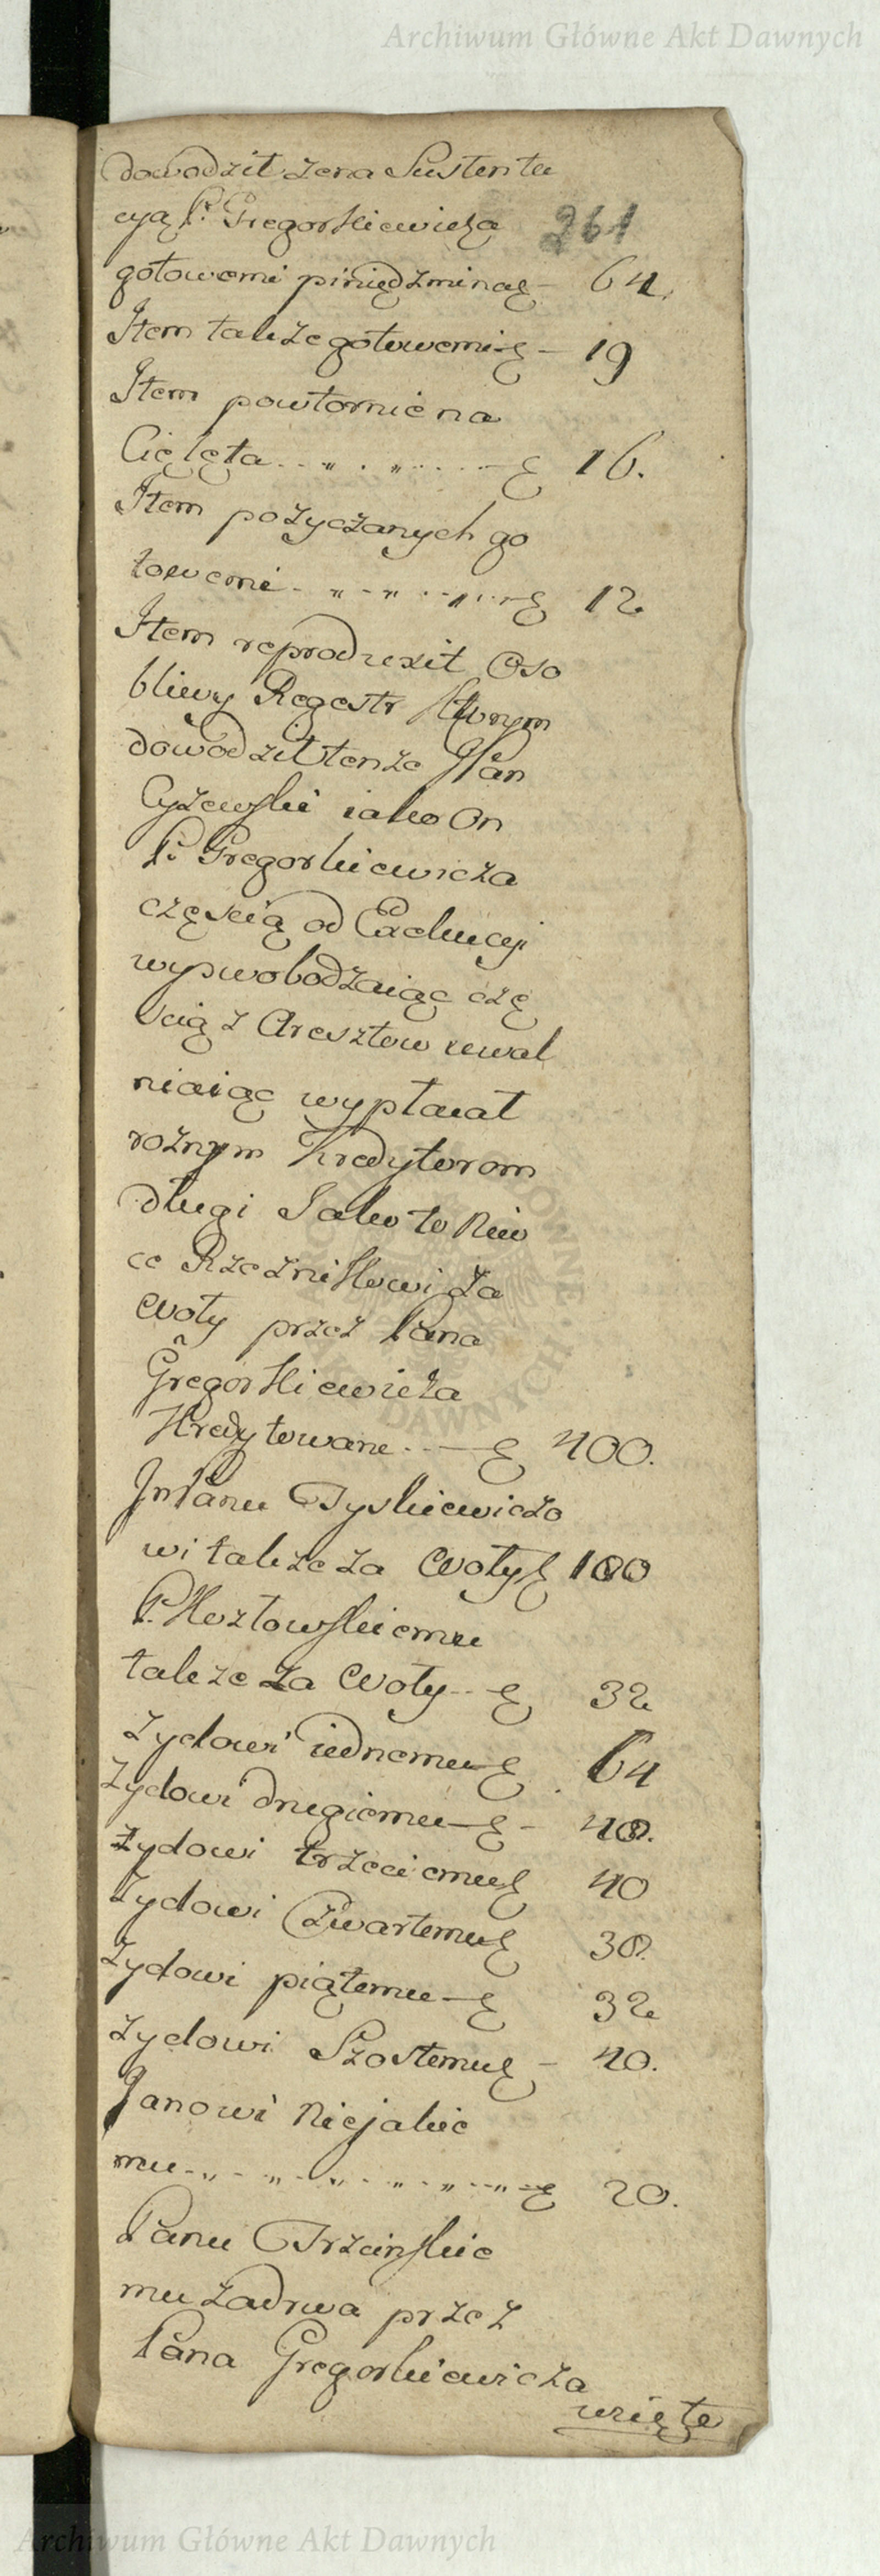 Archiwum Główne Akt Dawnych
dowodził że na Sustenta
cyą P. Gregorkiewicza 261
gotowemi piniędzmi na ę – 64.
Item także gotowemi ę – 19
Item powtornie na
Cięlęta . . „ . „ . . . . ę 16.
Item pożyczanych go
towemi – „ – „ . . „ . . ę 12
Item reprodukuit Oso
bliwy Regestr
dowodził tenże Pan
Cyżewski iako On
P. Gregorkiewicza
częścią od Exekucyi
wyswobodzaiąc czę
scią z Aresztow uwal
niaiąc wypłacał
rożnym Kredytorom
długi Jako to
ce Rzeznikowi za
Woły przez Pana
Gregorkiewicza
Kredytowane . – ę 400.
Panu Tyskiewiczo
wi także za Woły ę 100
P. Kozłowskiemu
także za Woły – ę 32
Zydowi iednemu – ę 64
Zydowi drugiemu – ę – 40.
Zydowi trzeciemu ę 40
Zydowi Czwartemu ę 30.
Zydowi piątemu – ę 32
Zydowi Szostemu ę – 40.
Janowi Niejakie
mu – „ – „ – „ – „ – „ – ę 20.
Panu Trzcinskie
mu za drwa przez
Pana Gregorkiewicza
wzięte
Archiwum Główne Akt Dawnych